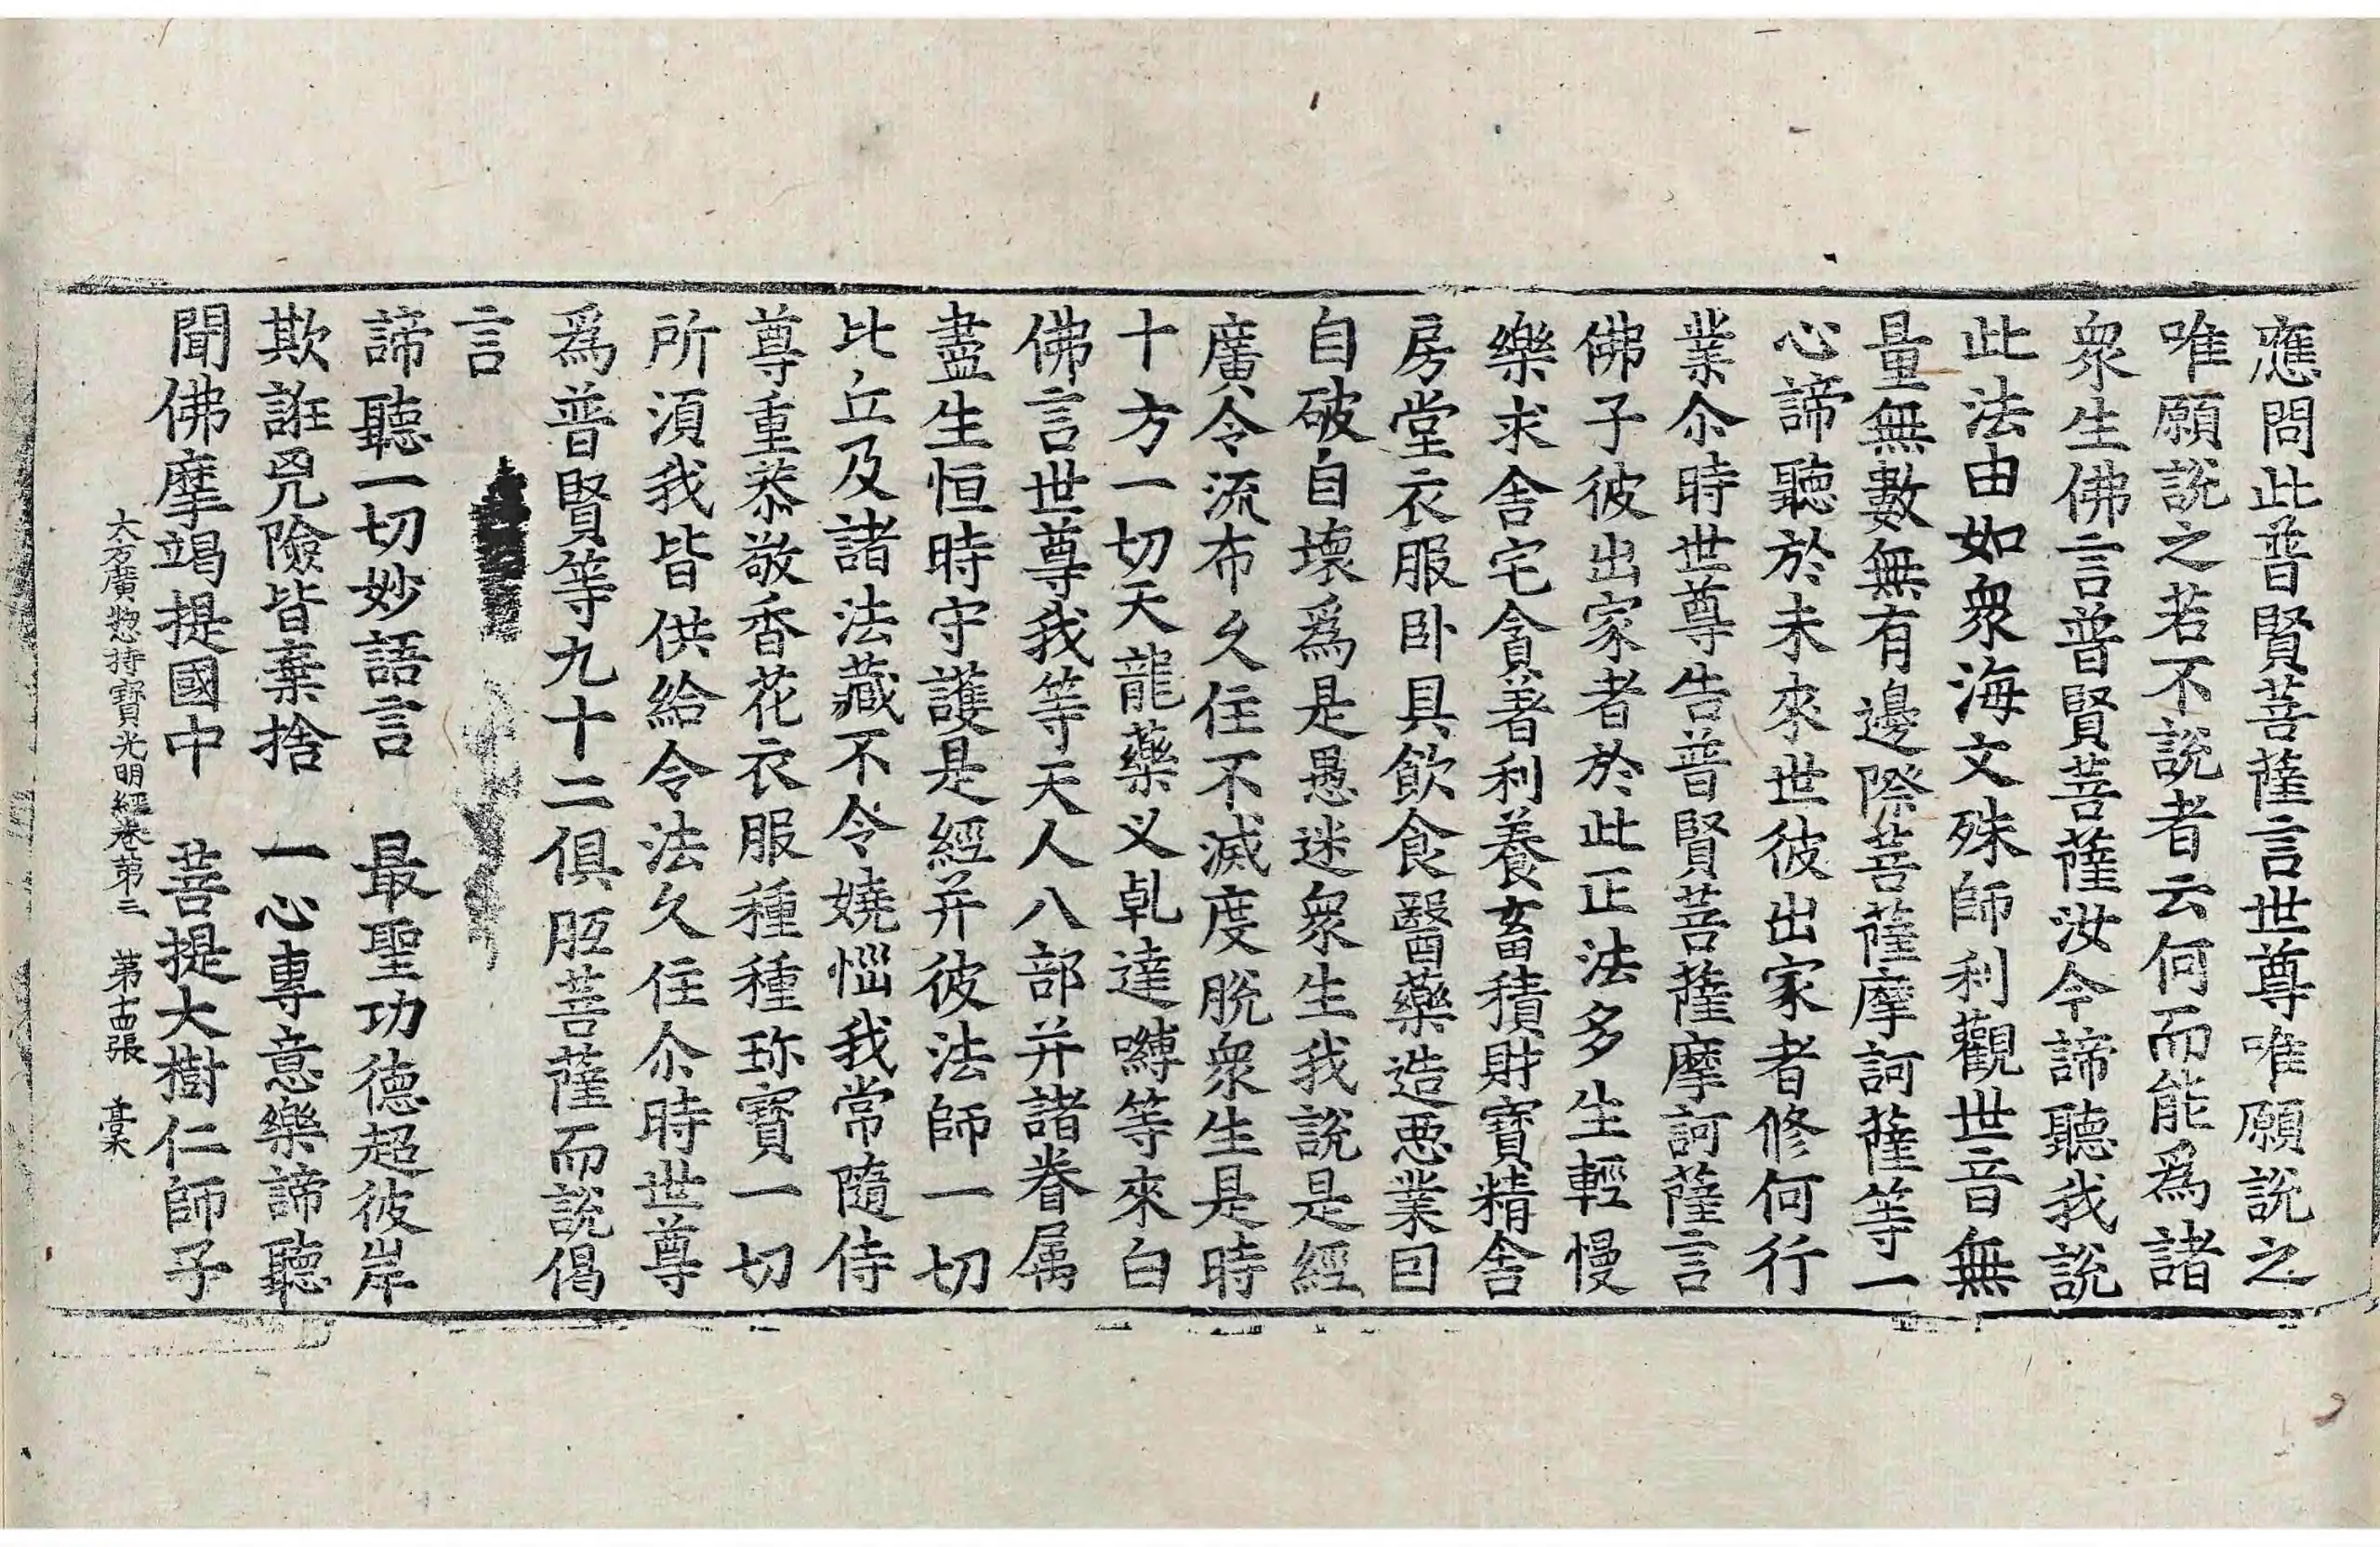 應問此普賢菩薩言世尊唯願說之
唯願說之若不說者云何而能爲諸
衆生佛言普賢菩薩汝今諦聽我說
此法由如衆海文殊師利觀世音無
量無數無有邊際菩薩摩訶薩等一
心諦聽於未來世彼出家者修何行
業尒時世尊告普賢菩薩摩訶薩言
佛子彼出家者於此正法多生輕慢
樂求舍宅貪著利養畜積財寶精舍
房堂衣服卧具飲食醫藥造惡業因
自破自壞爲是愚迷衆生我說是經
廣令流布久住不滅度脫衆生是時
十方一切天龍藥叉乹達嚩等來白
佛言世尊我等天人八部并諸眷属
盡生恒時守護是經并彼法師一切
比丘及諸法藏不令嬈惱我常隨侍
尊重恭敬香花衣服種種珎寶一切
所須我皆供給令法久住尒時世尊
爲普賢等九十二俱胝菩薩而說偈
言
諦聽一切妙語言　最聖功德超彼岸
欺誑兇險皆棄捨　一心專意樂諦聽
聞佛摩竭提國中　菩提大樹仁師子
大方廣惣持寶光明經卷第三　第十四張　槀